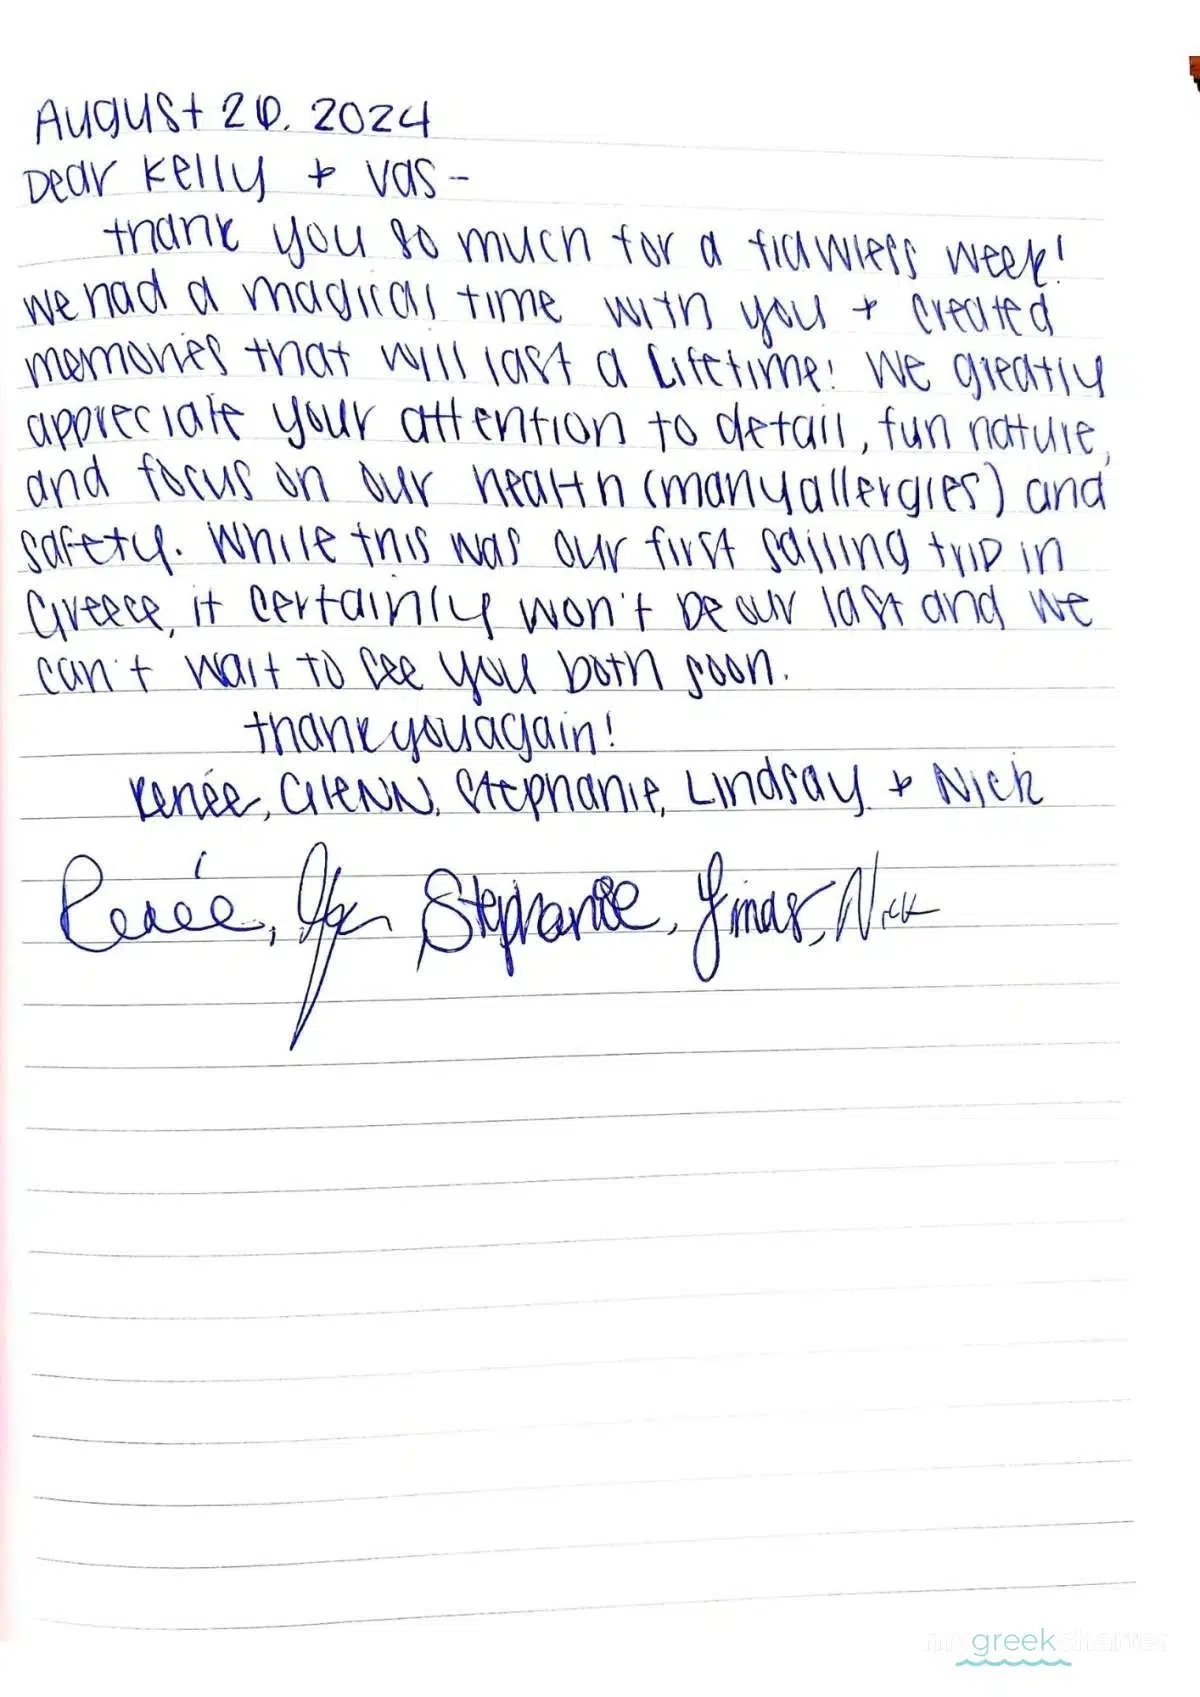 August 26, 2024
Dear Kelly + Vas -
Thank you so much for a flawless week!
We had a magical time with you + created
memories that will last a lifetime! We greatly
appreciate your attention to detail, fun nature,
and focus on our health (many allergies) and
safety. While this was our first sailing trip in
Greece, it certainly won't be our last and we
can't wait to see you both soon.
Thank you again!
Renée, Glenn, Stephanie, Lindsay + Nick
Renée, Stephanie, Nick
mygreekcharter